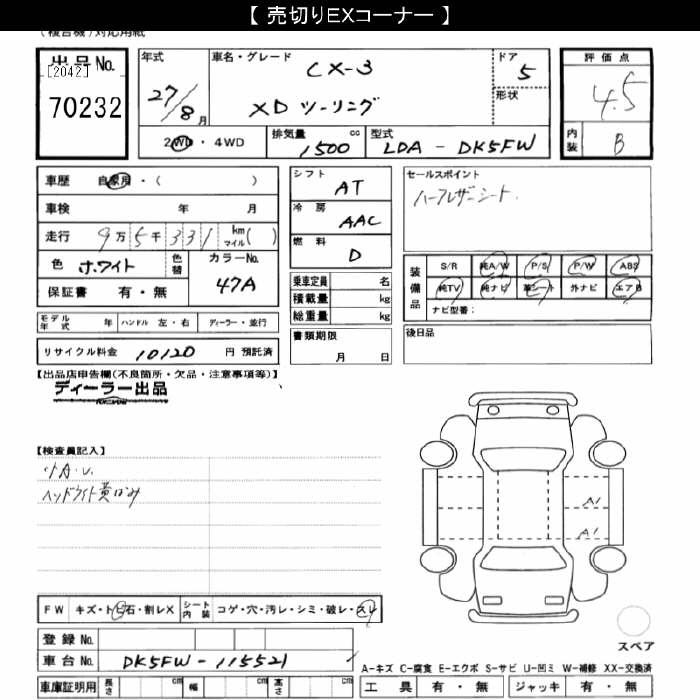 【 売切りEXコーナー 】
(複合機)対応用紙
出品No.
[2042]
70232
年式
27/8月
車名・グレード
CX-3
XD ツーリング
ドア
5
形状
2WD・4WD
排気量 cc
1500
型式
LDA - DK5FW
評価点
4.5
内装
B
車歴 自家用・( )
車検 年 月
走行 9万5千331 km マイル( )
色 ホワイト
色替
カラーNo.
47A
保証書 有・無
シフト
AT
冷房
AAC
燃料
D
乗車定員 名
積載量 kg
総重量 kg
セールスポイント
ハーフレザーシート.
装備品
S/R 純A/W P/S P/W ABS
純TV 純ナビ 革シート 外ナビ エアB
ナビ型番:
モデル年式 年 ハンドル 左・右 ディーラー・並行
リサイクル料金 10120 円 預託済
書類期限
月 日
後日品
【出品店申告欄(不良箇所・欠品・注意事項等)】
ディーラー出品
【検査員記入】
小A.U.
ヘッドライト黄ばみ
A1
A1
FW キズ・ト ビ石・割レX
シート内装 コゲ・穴・汚レ・シミ・破レ・スレ
登録No.
車台No. DK5FW-115521
スペア
A-キズ C-腐食 E-エクボ S-サビ U-凹ミ W-補修 XX-交換済
車庫証明用 長さ cm 幅 cm 高さ cm
工具 有・無 ジャッキ 有・無